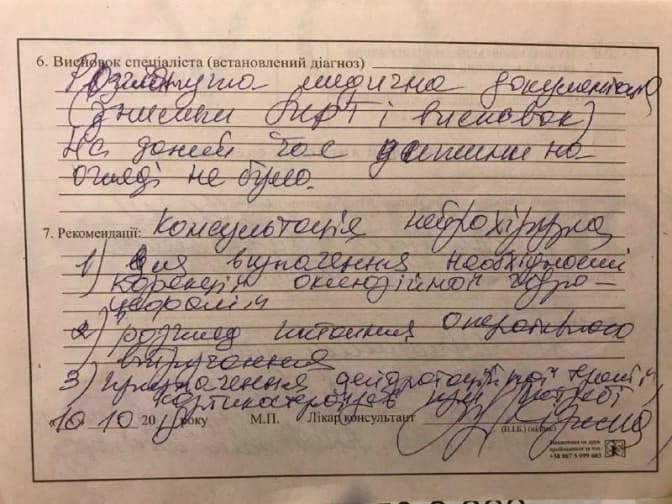 6. Висновок спеціаліста (встановлений діагноз)
Розглянута медична документація
(знімки МРТ і висновок)
На даний час дитини на
огляді не було.
7. Рекомендації: Консультація нейрохірурга
1) для визначення необхідності
корекції оклюзійної гідро-
цефалії
2) розгляд питання оперативного
втручання
3) призначення дегідратаційної терапії,
кортикостероїдів при потребі
10 10 20 року М.П. Лікар консультант
(П.І.Б.)
+38 067 5 999 603